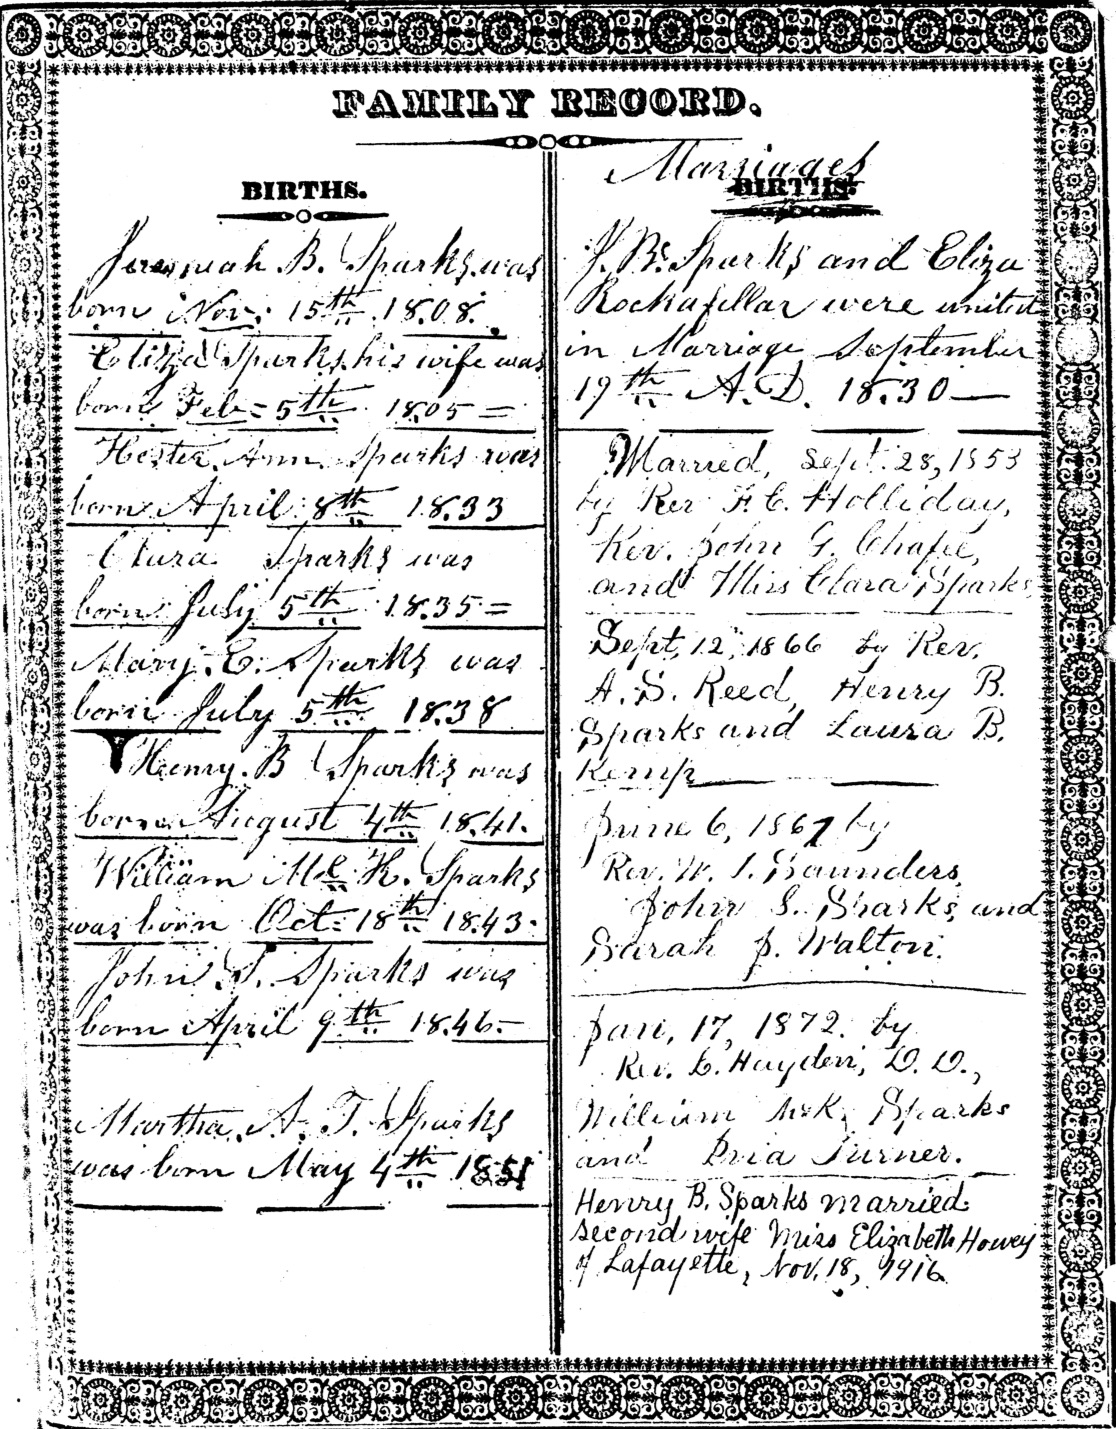 FAMILY RECORD.
BIRTHS.
Jeremiah B. Sparks was
born Nov. 15th 1808.
Eliza Sparks his wife was
born Feb = 5th 1805 =
Hester Ann Sparks was
born April 8th 1833
Clara Sparks was
born July 5th 1835 =
Mary. E. Sparks was
born July 5th 1838
Henry. B Sparks was
born August 4th 1841.
William Mc K. Sparks
was born Oct = 18th 1843.
John S. Sparks was
born April 9th 1846. =
Martha. A. T. Sparks
was born May 4th 1851
Marriages
BIRTHS.
J. B. Sparks and Eliza
Rockafellar were united
in Marriage September
19th A.D. 1830 —
Married, Sept. 28, 1853
by Rev F. C. Holliday,
Rev. John G. Chafee,
and Miss Clara Sparks
Sept, 12, 1866 by Rev.
A. S. Reed, Henry B.
Sparks and Laura B.
Kemp
June 6, 1867 by
Rev. W. S. Saunders,
John S. Sparks, and
Sarah J. Walton.
Jan, 17, 1872. by
Rev. L. Hayden, D. D.,
William McK. Sparks
and Turner.
Henry B. Sparks married
second wife Miss Elizabeth Howey
of Lafayette, Nov. 18, 1916